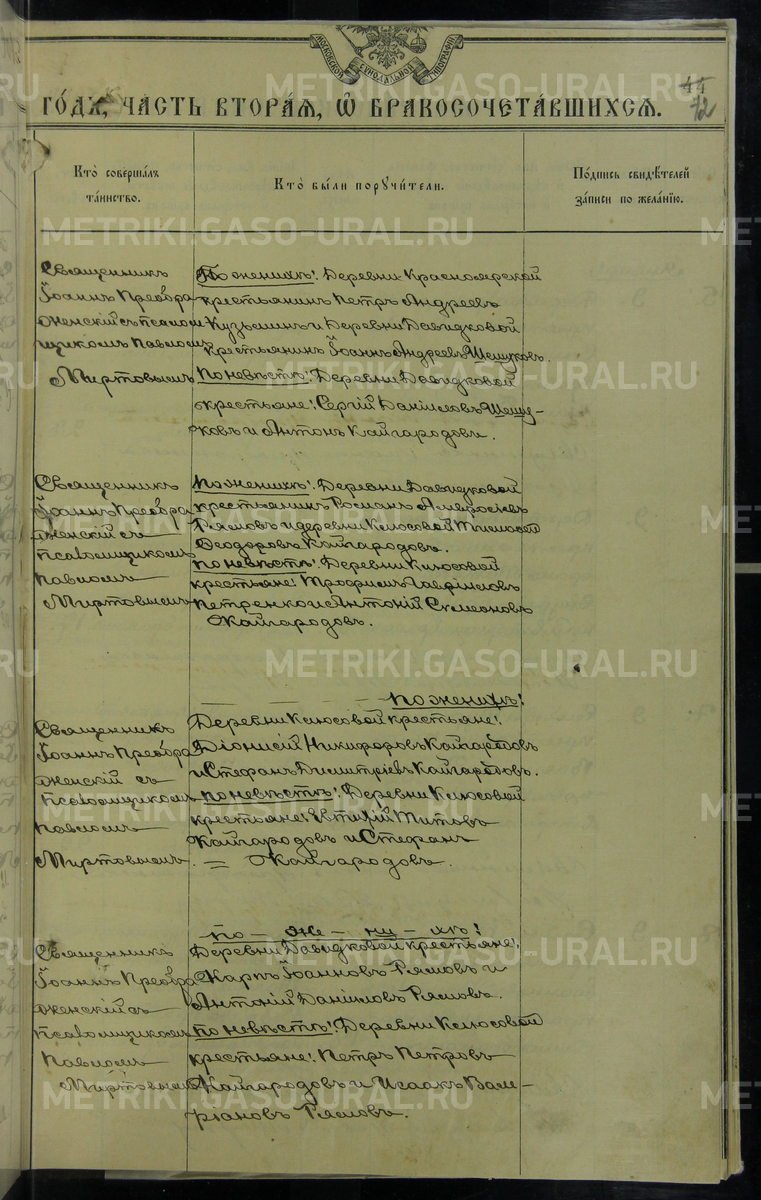 МОСКОВСКОЙ СѴНОДАЛЬНОЙ ТИПОГРАФІИ
METRIKI.GASO-URAL.RU
12
ГОДЪ, ЧАСТЬ ВТОРАЯ, Ѡ БРАКОСОЧЕТАВШИХСЯ.
Кто совершалъ
таинство.
Кто были поручители.
Подпись свидѣтелей
записи по желанію.
Священникъ
Іоаннъ Преобра
женскій съ псалом
щикомъ Павломъ
Миртовымъ
По женихѣ: Деревни Красноярской
крестьянинъ Петръ Андреевъ
Кузьминъ и Деревни Давыдковой
крестьянинъ Іоаннъ Андреевъ Шешуковъ.
По невѣстѣ: Деревни Давыдковой
крестьяне: Сергій Даніиловъ Шешу-
ковъ и Антонъ Кайгородовъ.
Священникъ
Іоаннъ Преобра
женскій съ
псаломщикомъ
Павломъ
Миртовымъ
По женихѣ: Деревни Давыдковой
крестьянинъ Романъ Амвросіевъ
Рямовъ и деревни Клюсовой Тимофей
Ѳеодоровъ Кайгородовъ.
по невѣстѣ: Деревни Клюсовой
крестьяне: Трофимъ Гавріиловъ
Петренко и Антоній Симеоновъ
Кайгородовъ.
по женихѣ:
Священникъ
Іоаннъ Преобра
женскій съ
псаломщикомъ
Павломъ
Миртовымъ.
Деревни Клюсовой крестьяне:
Діонисій Никифоровъ Кайгородовъ
и Стефанъ Димитріевъ Кайгородовъ.
по невѣстѣ: Деревни Клюсовой
крестьяне: Евтихій Титовъ
Кайгородовъ и Стефанъ
= Кайгородовъ.
по - же - ни - хѣ:
Священникъ
Іоаннъ Преобра
женскій съ
псаломщикомъ
Павломъ
Миртовымъ
Деревни Давыдковой крестьяне:
Карпъ Іоанновъ Рямовъ и
Антоній Даніиловъ Рямовъ.
по невѣстѣ: Деревни Клюсовой
крестьяне: Петръ Петровъ
Кайгородовъ и Исаакъ Вале-
ріановъ Рямовъ.